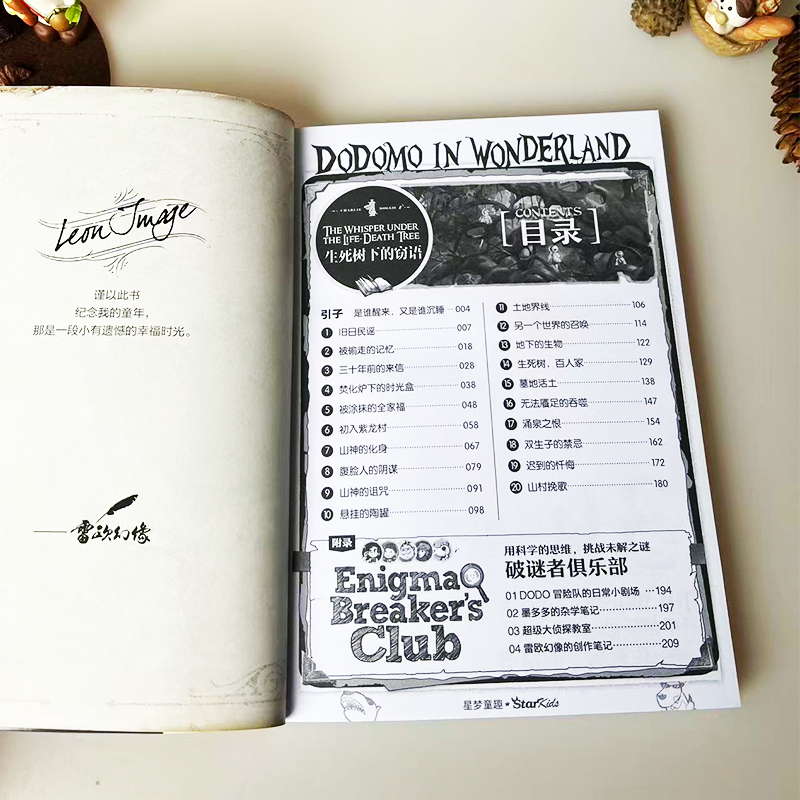 Leon Image
谨以此书
纪念我的童年，
那是一段小有遗憾的幸福时光。
——雷欧幻像
DODOMO IN WONDERLAND
CHARLIE
THE WHISPER UNDER
THE LIFE-DEATH TREE
生死树下的窃语
CONTENTS
[目录]
引子 是谁醒来，又是谁沉睡 004
1 旧日民谣 007
2 被偷走的记忆 018
3 三十年前的来信 028
4 焚化炉下的时光盒 038
5 被涂抹的全家福 048
6 初入紫龙村 058
7 山神的化身 067
8 腹脸人的阴谋 079
9 山神的诅咒 091
10 悬挂的陶罐 098
11 土地界线 106
12 另一个世界的召唤 114
13 地下的生物 122
14 生死树，百人冢 129
15 墓地活土 138
16 无法餍足的吞噬 147
17 涌泉之恨 154
18 双生子的禁忌 162
19 迟到的忏悔 172
20 山村挽歌 180
附录
Enigma
Breaker's
Club
用科学的思维，挑战未解之谜
破谜者俱乐部
01 DODO 冒险队的日常小剧场 …194
02 墨多多的杂学笔记 197
03 超级大侦探教室 201
04 雷欧幻像的创作笔记 209
星梦童趣★StarKids